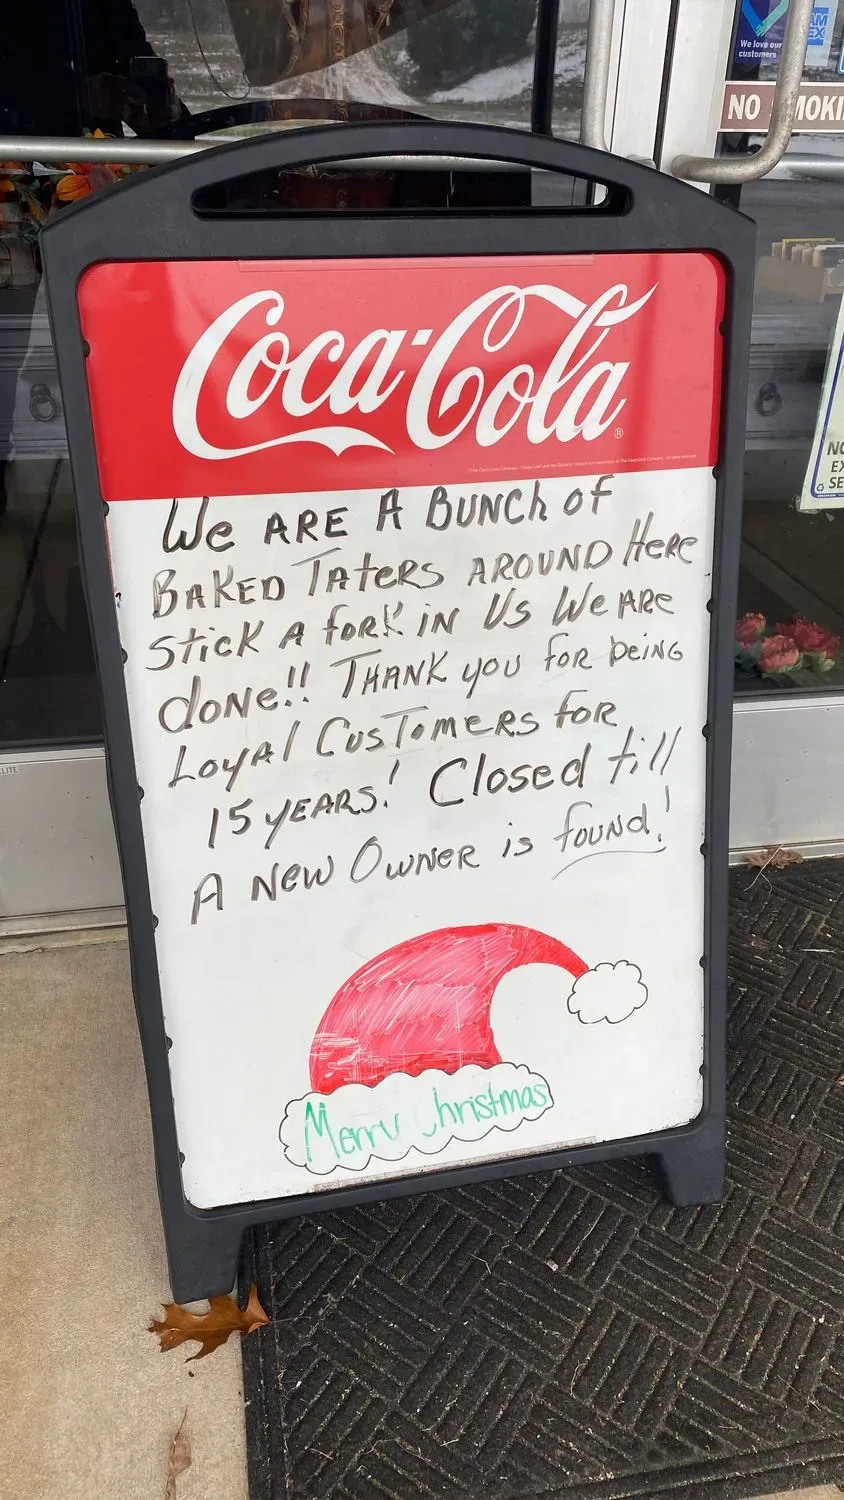 We love our
customers
AM
EX
NO SMOKI
Coca-Cola
We ARE A BUNCh of
BAKED TATERS AROUND HERE
STICK A fORK iN Us We ARE
dONe!! THANK you FOR beiNG
LoyAl CusTomeRs FOR
15 yEARS! Closed till
A New OwNeR is fouNd!
Merry Christmas
NO
EX
SE
LITE